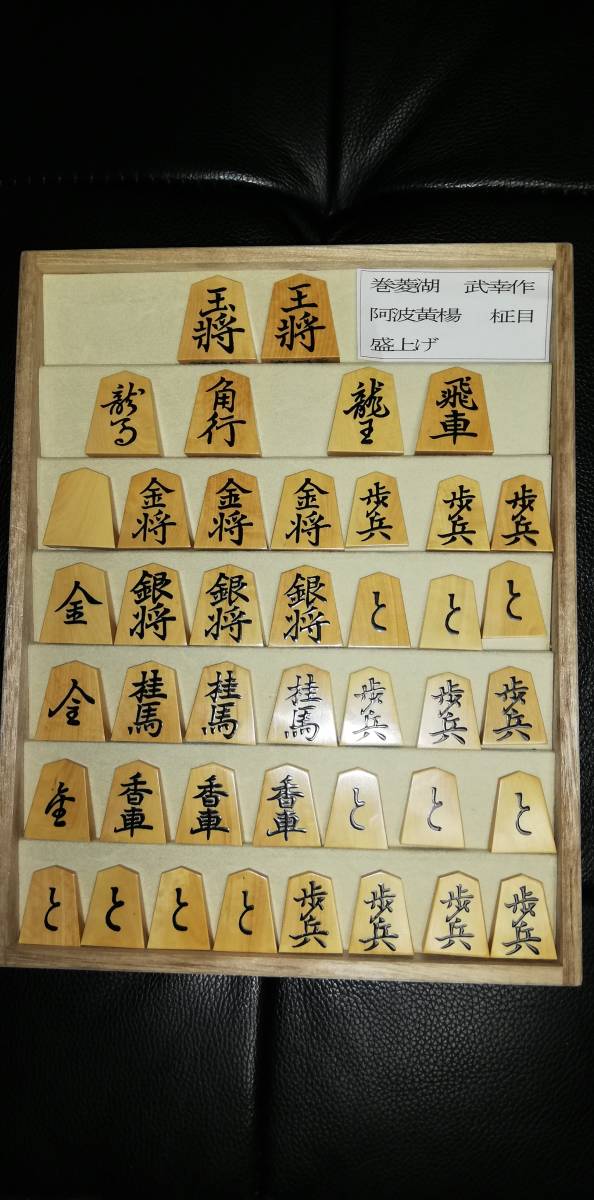 巻菱湖 武幸作
阿波黄楊 柾目
盛上げ
玉将 王将
龍馬 角行 龍王 飛車
金将 金将 金将 歩兵 歩兵 歩兵
全 銀将 銀将 銀将 と と と
桂馬 桂馬 桂馬 歩兵 歩兵 歩兵
香車 香車 香車 と と と
と と と と 歩兵 歩兵 歩兵 歩兵